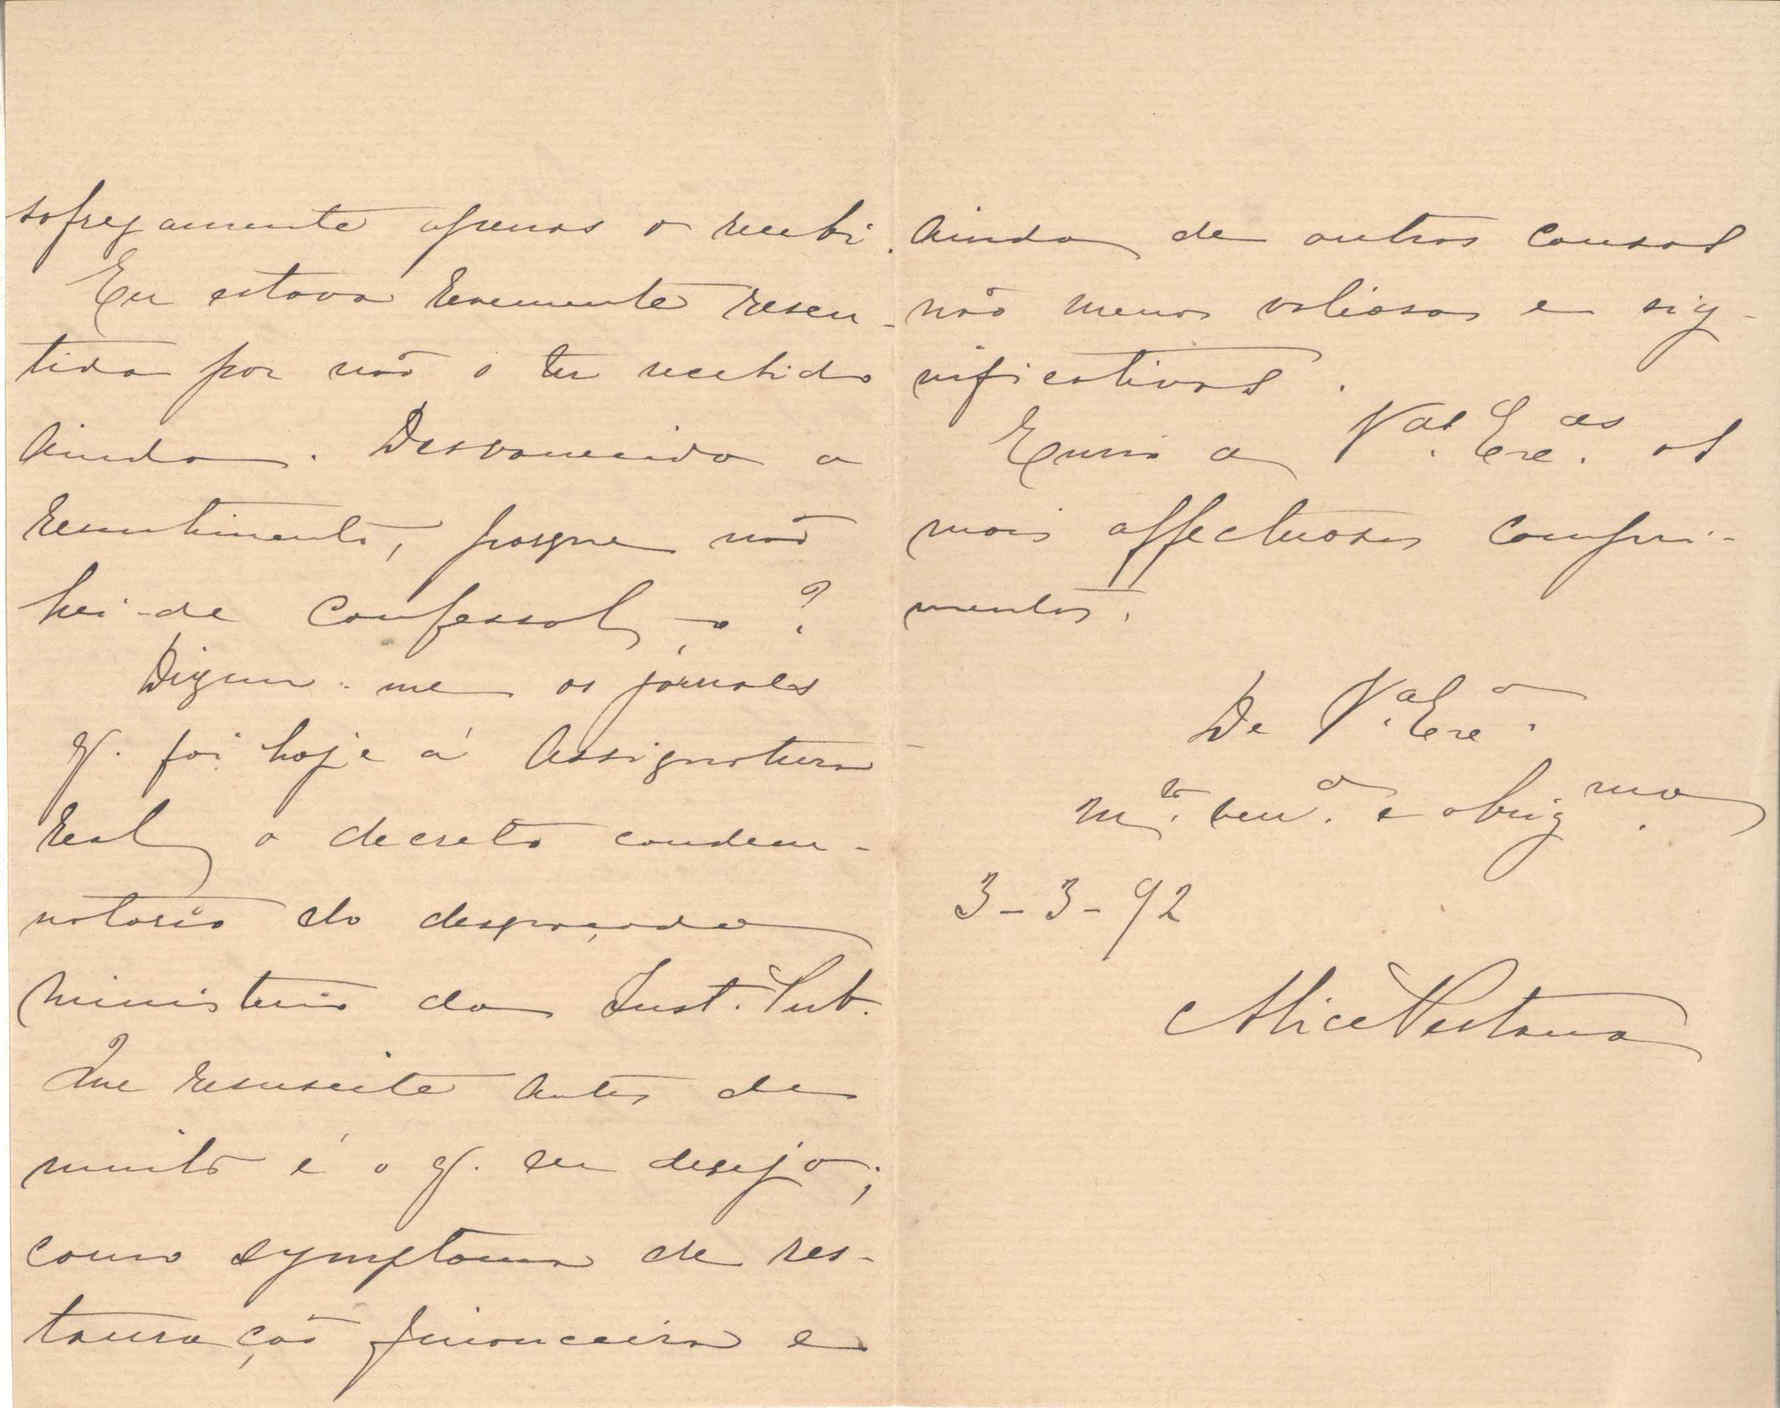 sofregamente apenas o recebi.
Eu estava levemente resen-
tida por não o ter recebido
ainda. Desvanecido o
resentimento, porque não
hei-de confessal-o?
Dizem-me os jornaes
q. foi hoje á assignatura
real o decreto condem-
natorio do desgraçado
ministerio da Inst. Pub.
Que resuscite antes de
muito é o q. eu desejo;
como symptoma de res-
tauração financeira e
ainda de outras cousas
não menos valiosas e sig-
nificativas.
Envio a V.as Exc.as os
mais affectuosos compri-
mentos.
De V.a Exc.a
m.to ven.a e obrig.ma
3-3-92
Alice Pestana